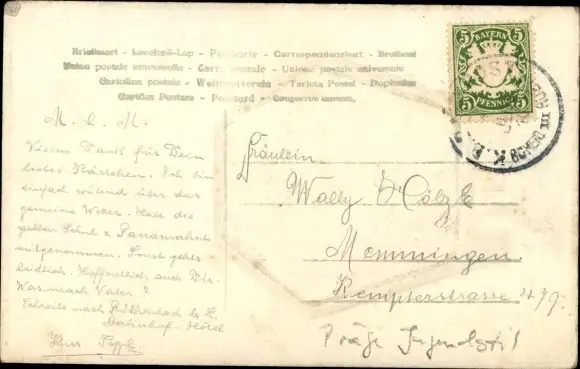 Briefkaart - Levelező-Lap - Postcarte - Correspondenzkart - Brefkort
Union postale universelle - Carte postale - Union postale universelle
Cartolina postale - Weltpostverein - Tarjeta Postal - Dopisnice
Cartão Postare - Postcard
BAYERN
5 5
5 PFENNIG 5
M. l. M.
Vielen Dank für Dein
liebes Kärtchen. Ich bin
einfach wütend über das
gemeine Wetter. Habe die
gelben Schuh & Panamahut
mitgenommen. Sonst gehts
leidlich. Hoffentlich auch Dir.
Was macht Vater?
Schreibe nach Röthenbach b/ L.
Bahnhof-Hotel
Fräulein
Wally Hölzle
Memmingen
Kempterstrasse
Präge Jugendstil